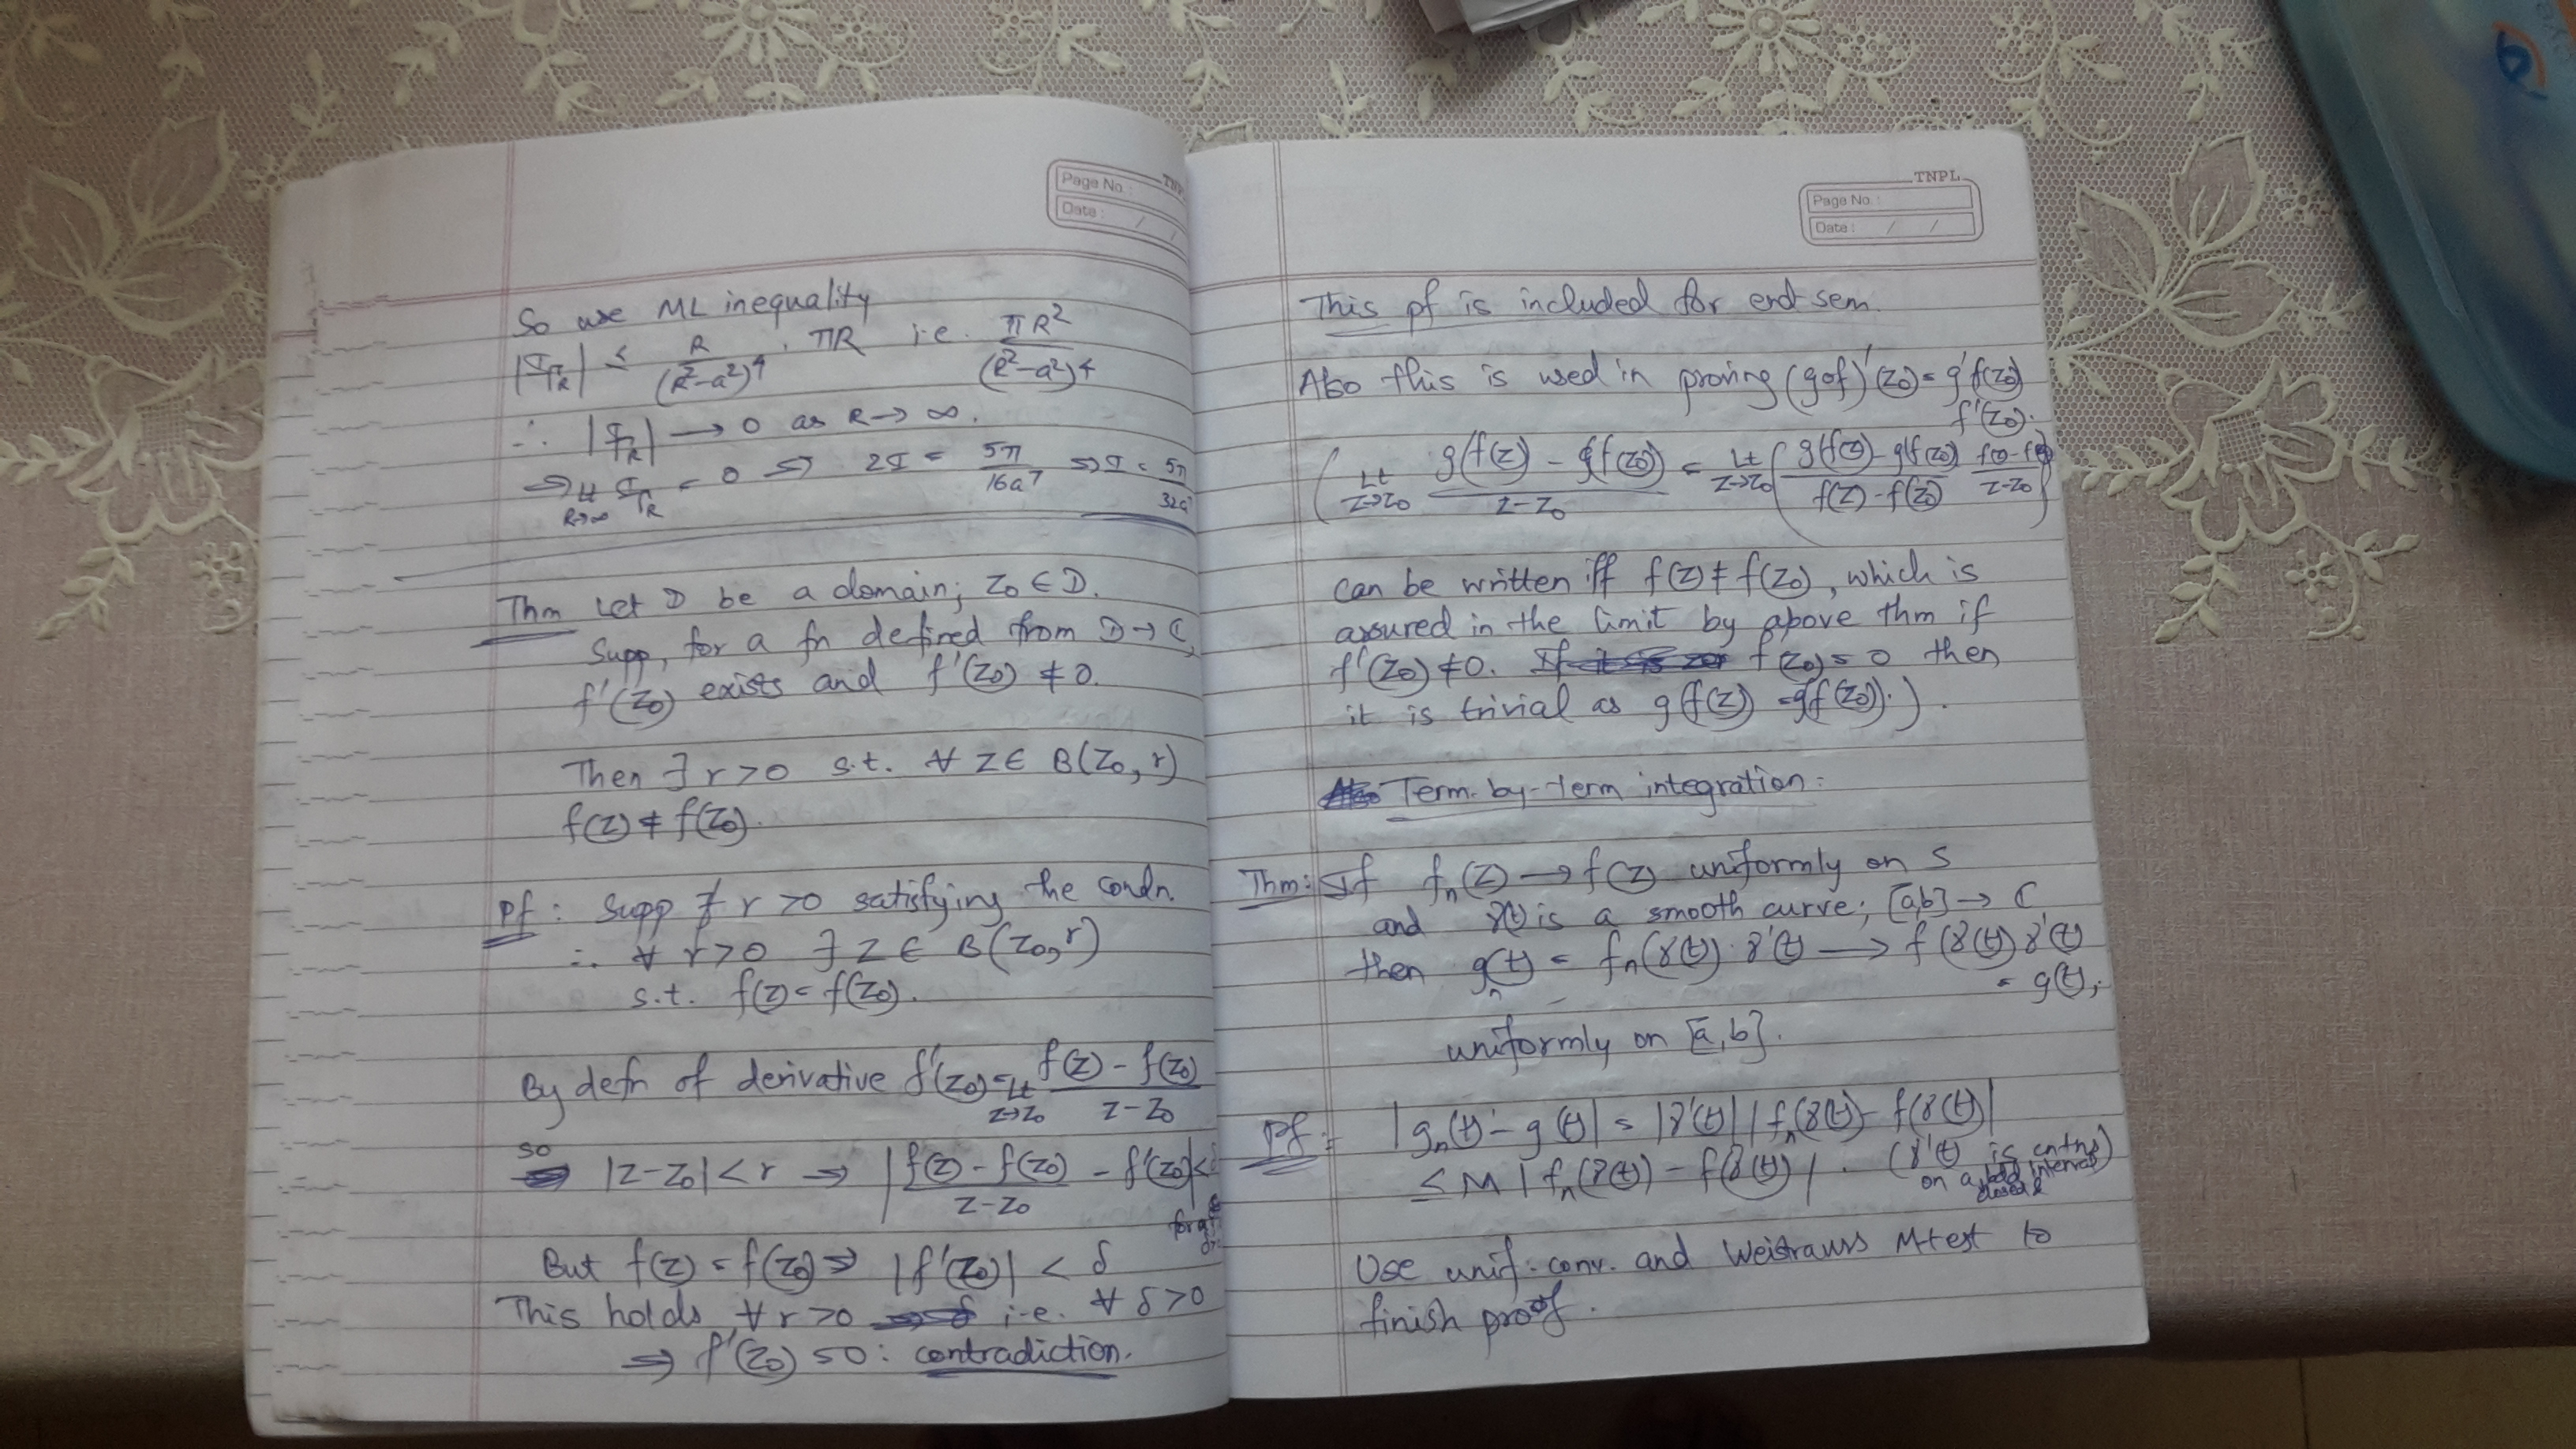 Page No.:
TNP
Date: / /
So use ML inequality
|I_{Γ_R}| ≤ R/(R²-a²)⁴ . πR i.e. πR²/(R²-a²)⁴
∴ |I_{Γ_R}| → 0 as R → ∞.
⇒ Lt_{R→∞} I_{Γ_R} = 0 ⇒ 2I = 5π/16a⁷ ⇒ I = 5π/32a⁷
Thm Let D be a domain; z₀ ∈ D.
Supp, for a fn defined from D → ℂ,
f'(z₀) exists and f'(z₀) ≠ 0.
Then ∃ r > 0 s.t. ∀ z ∈ B(z₀, r)
f(z) ≠ f(z₀).
Pf: Supp ∄ r > 0 satisfying the condn.
∴ ∀ r > 0 ∃ z ∈ B(z₀, r)
s.t. f(z) = f(z₀).
By defn of derivative f'(z₀) = Lt_{z→z₀} (f(z) - f(z₀))/(z - z₀)
so |z - z₀| < r ⇒ |(f(z) - f(z₀))/(z - z₀) - f'(z₀)| <
But f(z) = f(z₀) ⇒ |f'(z₀)| < δ
This holds ∀ r > 0 i.e. ∀ δ > 0
⇒ f'(z₀) = 0: contradiction.
TNPL
Page No.:
Date: / /
This pf is included for end sem.
Also this is used in proving (gof)'(z₀) = g'f(z₀)
f'(z₀).
( Lt_{z→z₀} (g(f(z)) - g(f(z₀)))/(z - z₀) = Lt_{z→z₀} ( (g(f(z)) - g(f(z₀)))/(f(z) - f(z₀)) (f(z) - f(z₀))/(z - z₀) )
can be written iff f(z) ≠ f(z₀), which is
assured in the limit by above thm if
f'(z₀) ≠ 0. If f(z₀) = 0 then
it is trivial as g(f(z)) = g(f(z₀)).).
Term-by-term integration:
Thm: If fₙ(z) → f(z) uniformly on S
and γ(t) is a smooth curve; [a,b] → ℂ
then gₙ(t) = fₙ(γ(t)).γ'(t) → f(γ(t))γ'(t)
= g(t),
uniformly on [a, b].
Pf: |gₙ(t) - g(t)| = |γ'(t)| |fₙ(γ(t)) - f(γ(t))|
≤ M |fₙ(γ(t)) - f(γ(t))| . (γ'(t) is cntns
on a closed & bdd interval)
Use unif. conv. and Weistrauss M-test to
finish proof.